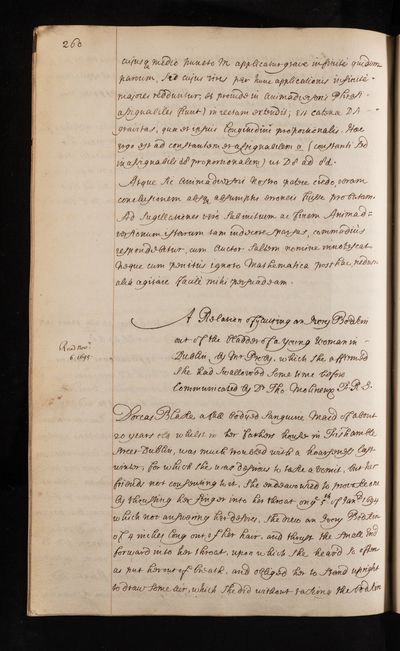 260
cujusq medio puncto M applicatur grave infinite quidem
parvum, sed cujus vires per hunc applicationis infinite
majores redduntur; et proinde in animadversoris Phrasi
assignabiles fiunt) in rectam extendit; Est catenæ DA
gravitas, quæ est ipsius longitudini proportionalis. Hæc
ergo est ad constantem et assignabilem a (constanti sed
inassignabili dd proportionalem) ut Dd ad dd.
Atque sic animadversori nostro patere credo, veram
conclusionem absq assumptis erroneis fuisse probatam.
Ad sugillationes vero sub initium ac finem Animad=
versionum istarum tam indecore sparsas, commodius
respondebitur, cum Auctor saltem nomine innotescat.
Neque cum penitus ignoto Mathematica posthac, nedum
alia agitare facile mihi persuadeam.
A Relation of cutting an Ivory Bodkin
out of the bladder of a young woman in
Dublin by Mr Proby, which she affirmed
she had swallowed some time before
Communicated by Dr Tho. Molineux F. R. S.
Read Novr
6. 1695.
Dorcas Blake, a tall bodyed sanguine maid of about
20 years old, whilst in her fathers house in Fishamble
street Dublin, was much troubled with a hoarseness last
winter; for which she was desirous to take a vomit, but her
friends not consenting to it, she endeavoured to provoke one
by thrusting her finger into her throat on ye 5th of Janry 1694
which not answering her desires, she drew an Ivory Bodkin
of 4 inches long out of her hair, and thrust the small end
forward into her throat, upon which she heav'd so often
as put her out of breath, and obliged her to stand upright
to draw some air, which she did without taking the bodkin